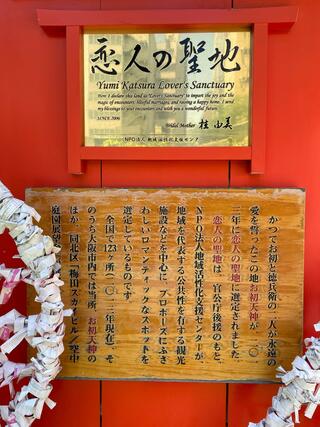 恋人の聖地
Yumi Katsura Lover's Sanctuary
Here I declare this land as "Lover's Sanctuary" to impart the joy and the
magic of encounters, blissful marriages, and raising a happy home. I send
my blessings to your encounters and wish you a wonderful future.
SINCE 2006
Bridal Mother 桂 由美
NPO法人 地域活性化支援センター
かつてお初と徳兵衛の二人が永遠の
愛を誓ったこの地お初天神が、二〇一
二年に恋人の聖地に選定されました。
恋人の聖地は、官公庁後援のもと、
NPO法人地域活性化支援センターが、
地域を代表する公共性を有する観光
施設などを中心に、プロポーズにふさ
わしいロマンティックなスポットを
選定しているものです。
全国で123ヶ所
年現在)、そ
のうち大阪市内では当所「お初天神の
ほか、同北区「梅田スカイビル/空中
庭園展望